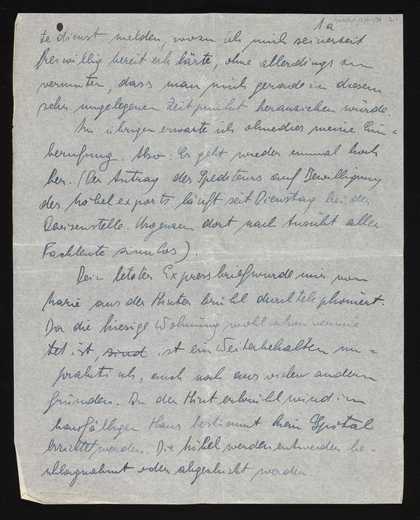 1a
te dienst melden, wozu ich mich seinerzeit
freiwillig bereit erklärte, ohne allerdings zu
vermuten, dass man mich gerade in diesem
sehr ungelegenen Zeitpunkt heranziehen würde.
Im übrigen erwarte ich ohnedies meine Ein=
berufung. Also: Es geht wieder einmal hoch
her. (Der Antrag des Spediteurs auf Bewilligung
des Möbelexports läuft seit Dienstag bei der
Devisenstelle. Urgenzen dort nach Ansicht aller
Fachleute sinnlos)
Dein letzter Expressbrief wurde mir von
Marie aus der Hinterbrühl durchtelephoniert.
Da die hiesige Wohnung wohl schon vermie
tet ist, sind ist ein Weiterbehalten un=
praktisch, auch noch aus vielen andern
Gründen. In der Hinterbrühl wird im
baufälligen Haus bestimmt kein Spital
errichtet werden. Die Möbel werden entweder be=
schlagnahmt oder abgeschickt werden